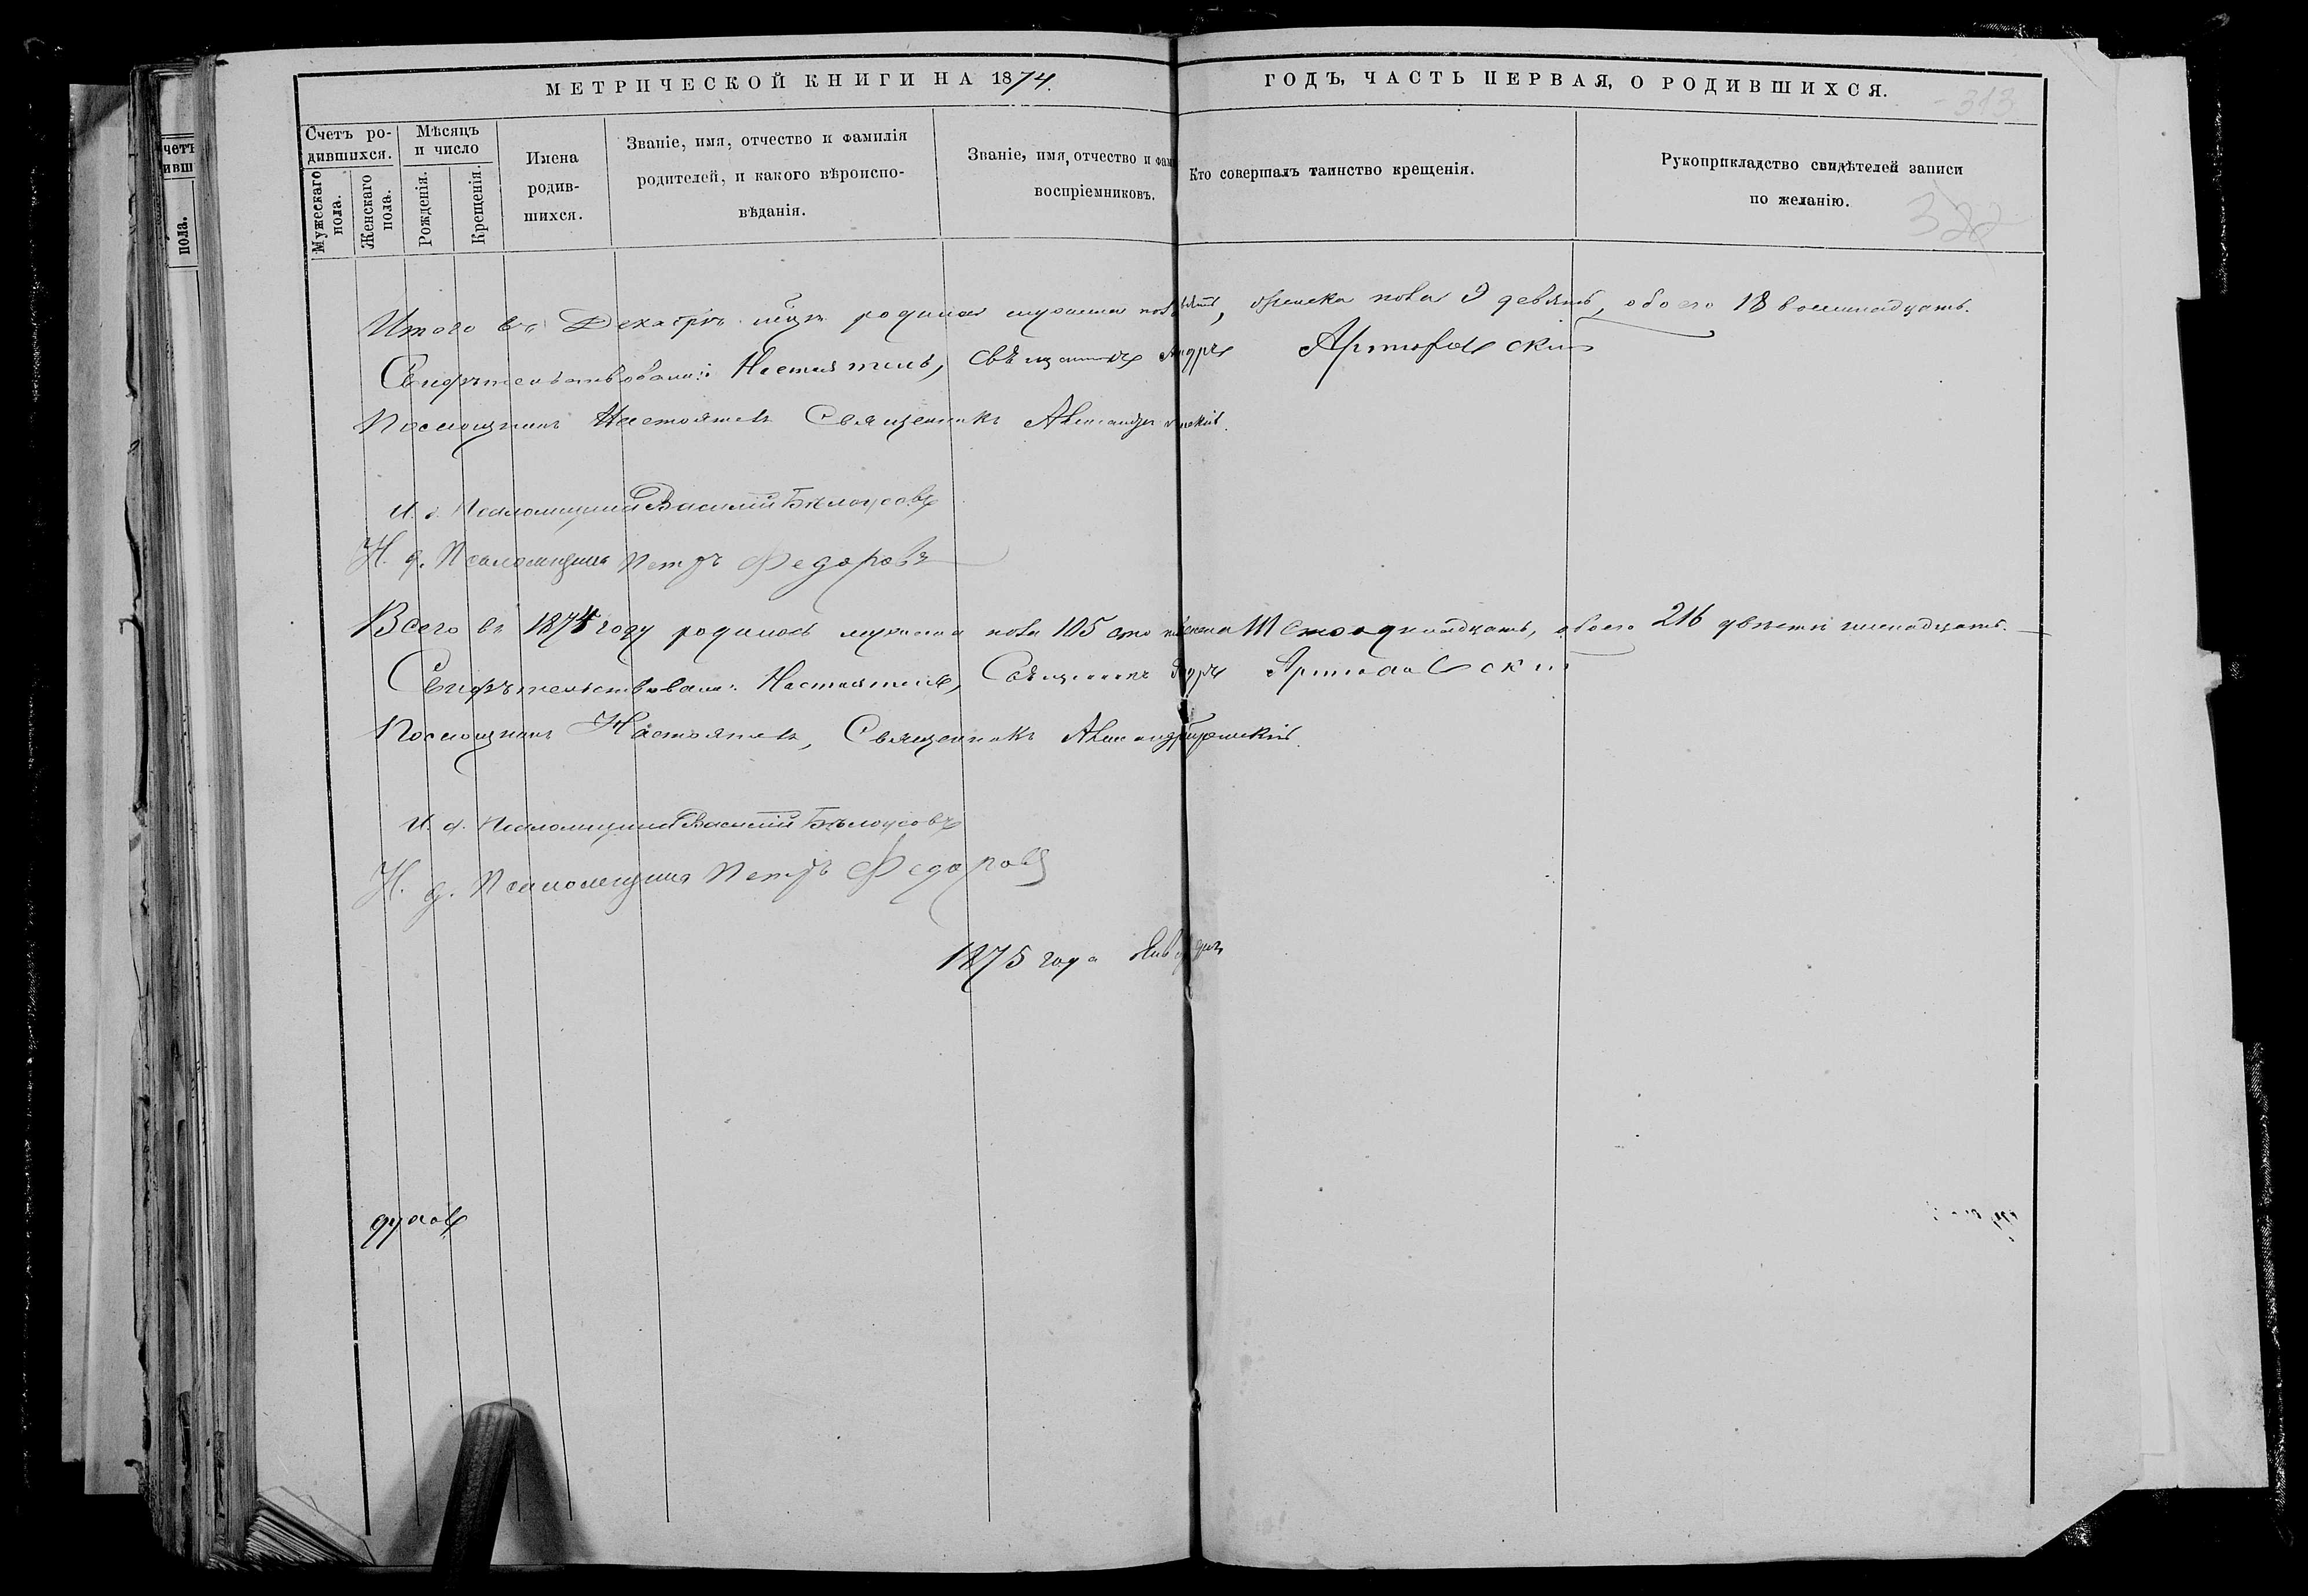 МЕТРИЧЕСКОЙ КНИГИ НА 1874. ГОДЪ, ЧАСТЬ ПЕРВАЯ, О РОДИВШИХСЯ.
313
Счетъ ро-
дившихся.
Мужескаго пола.
Женскаго пола.
Мѣсяцъ
и число
Рожденія.
Крещенія.
Имена
родив-
шихся.
Званіе, имя, отчество и фамилія
родителей, и какого вѣроиспо-
вѣданія.
Званіе, имя, отчество и фам
воспріемниковъ.
Кто совершалъ таинство крещенія.
Рукоприкладство свидѣтелей записи
по желанію.
322
четъ
ивш
пола.
Итого въ Декабрѣ родилось мужеска пола женска пола 9 девять, обоего 18 восемнадцать.
Свидѣтельствовали: Настоятель, Священникъ Андрей
Помощникъ Настоятеля Священникъ Александръ
И. д. Псаломщика Василій Бѣлоусовъ
И. д. Псаломщика Петръ Федоровъ
Всего въ 1874 году родилось мужеска пола 105 сто женска 111 сто одинадцать, обоего 216 двѣсти шеснадцать.
Свидѣтельствовали: Настоятель, Священникъ
Помощникъ Настоятеля, Священникъ Александръ
И. д. Псаломщика Василій Бѣлоусовъ
И. д. Псаломщика Петръ Федоровъ
1875 года